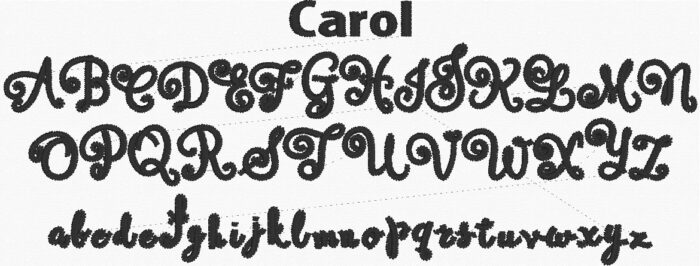 Carol
ABCDEFGHIJKLMN
OPQRSTUVWXYZ
abcdefghijklmnopqrstuvwxyz